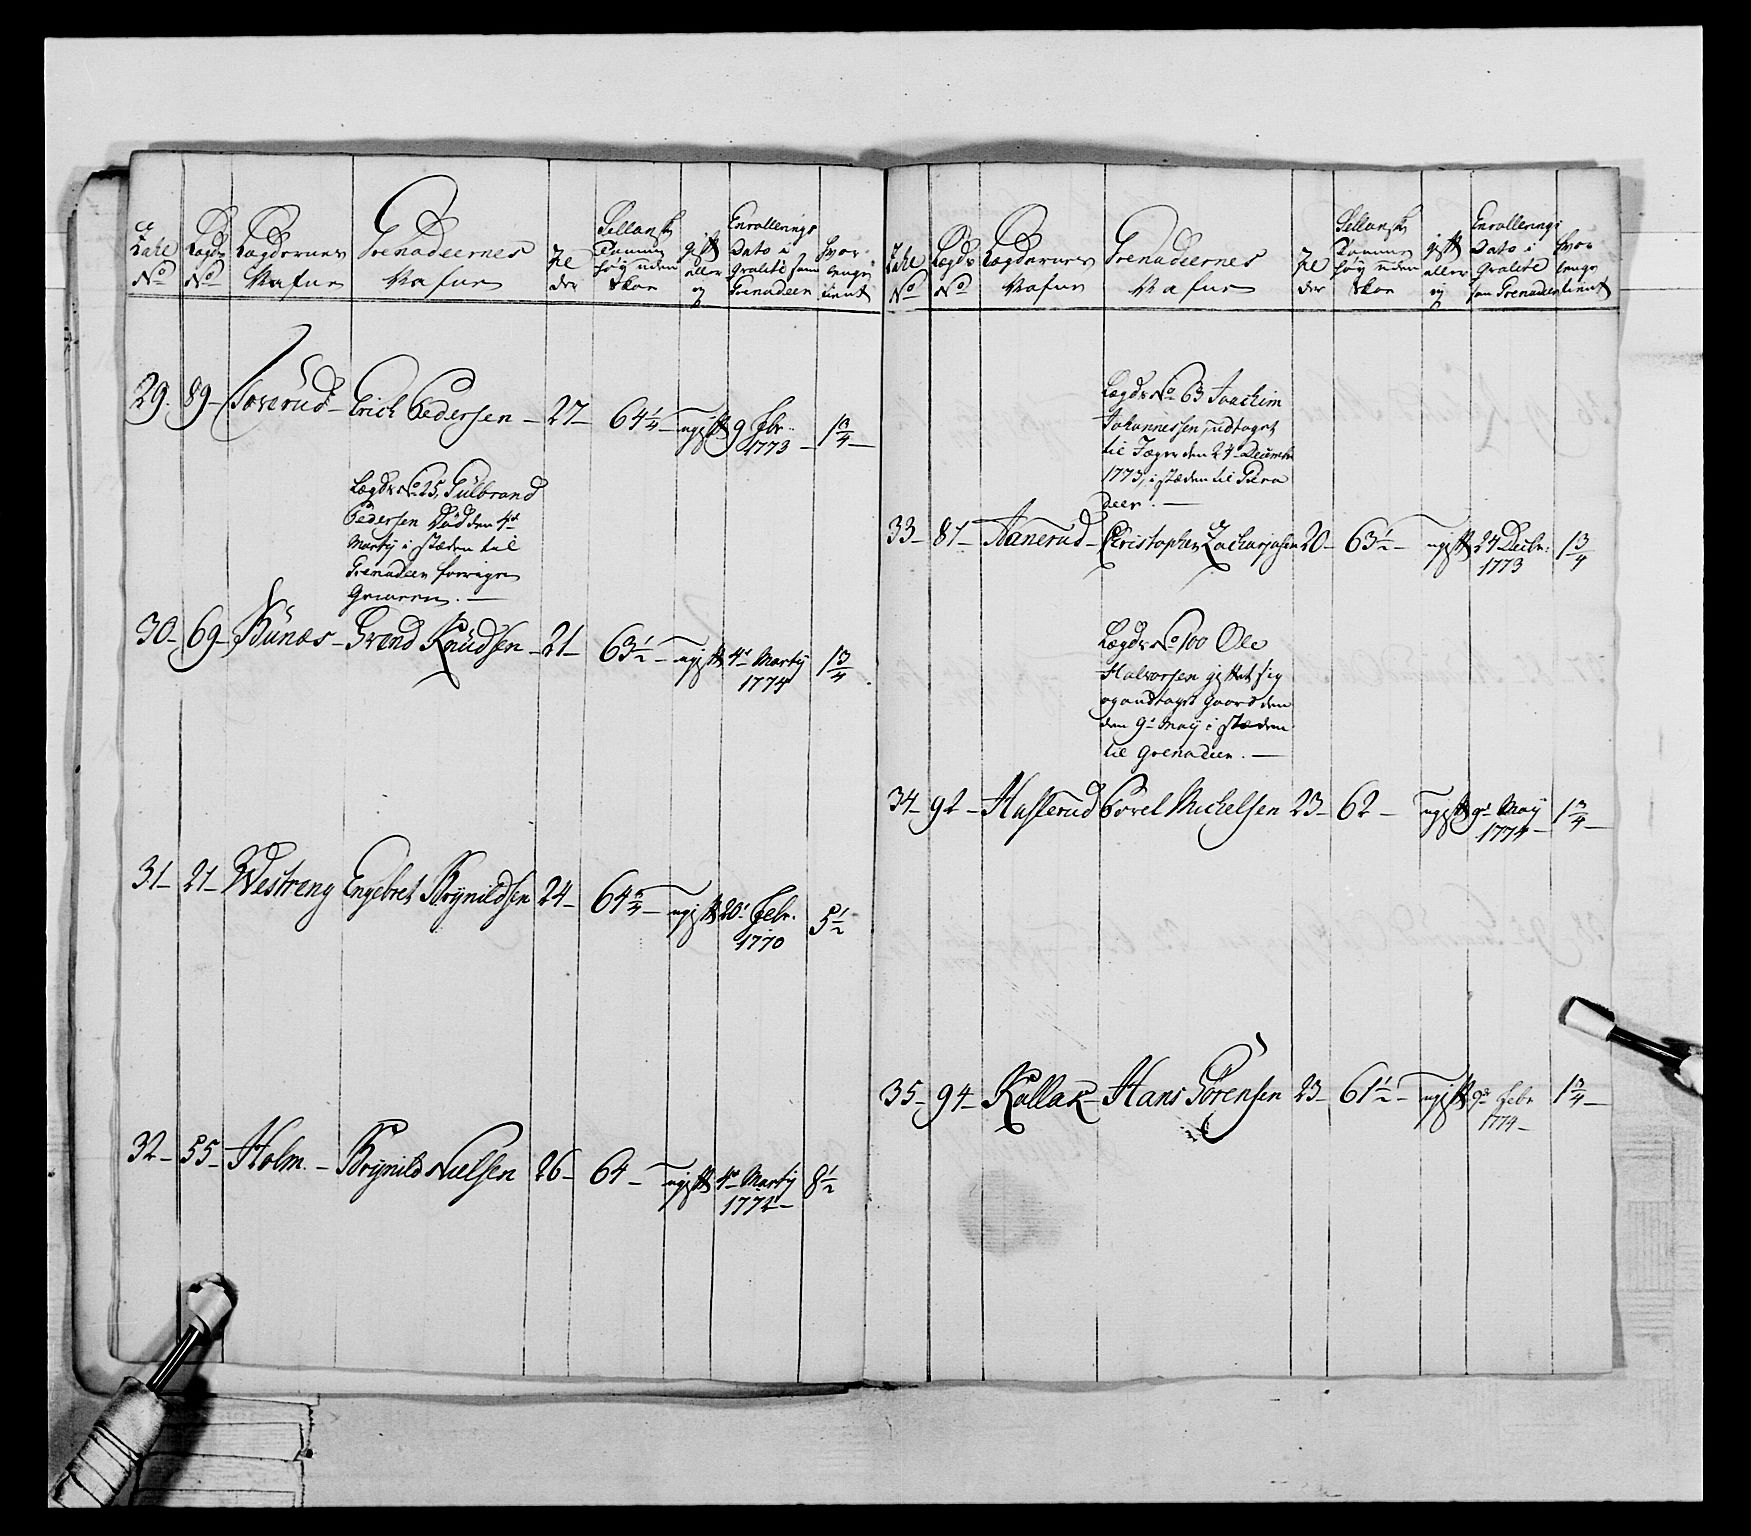 Tahl No
Lægds No
Lægdernes Nafne
Grenadeernes Nafne
Alder
Sellandsk Tommer høy uden Skoe
gift eller ej
Enrollerings Dato i Qvalité som Grenadeer
hvor længe tient
29. 89 – Soverud – Erich Pedersen – 27 – 64 1/4 – ugift 9 Febr: 1773 – 1 3/4 –
Lægds No 25, Gülbrand
Pedersen Död den 4de
Martij i stæden til
Grenadeer forrige
30 – 69 – Bünæs – Svend Knüdsen – 21 – 63 1/2 – ugift 4de Martij 1774 1 3/4
31 – 21 – Westreng Engebret Brynildsen 24 – 64 3/4 – ugift 20' Febr. 1770 5 1/2
32 – 55 – Holm. – Brynild Nielsen 26 – 64 – ugift 4de Martij 1774 – 8 1/2
Tahl No
Lægds No
Lægdernes Nafne
Grenadeernes Nafne
Alder
Sellandsk Tommer høy uden Skoe
gift eller ej
Enrollerings Dato i Qvalité som Grenadeer
hvor længe tient
Lægds No 63 Joachim
Johannessen, udtaget
til Jæger den 24de Decembr
1773, i stæden til Grena
deer. –
33 – 87 – Aanerud – Christopher Zacharjasen 20 – 63 1/2 – ugift 24 Decbr: 1773 1 3/4
Lægds No 100 Ole
Halvorsen giftet sig
og andtaget Gaard den
den 9de Maij i stæden
til Grenadeer. –
34 – 92 – Haslerud Povel Michelsen 23 – 62 – ugift 9de Maij 1774 – 1 3/4 –
35 – 94 – Kollak – Hans Sörensen 23 – 61 1/2 – ugift 9de Febr 1774 – 1 3/4 –